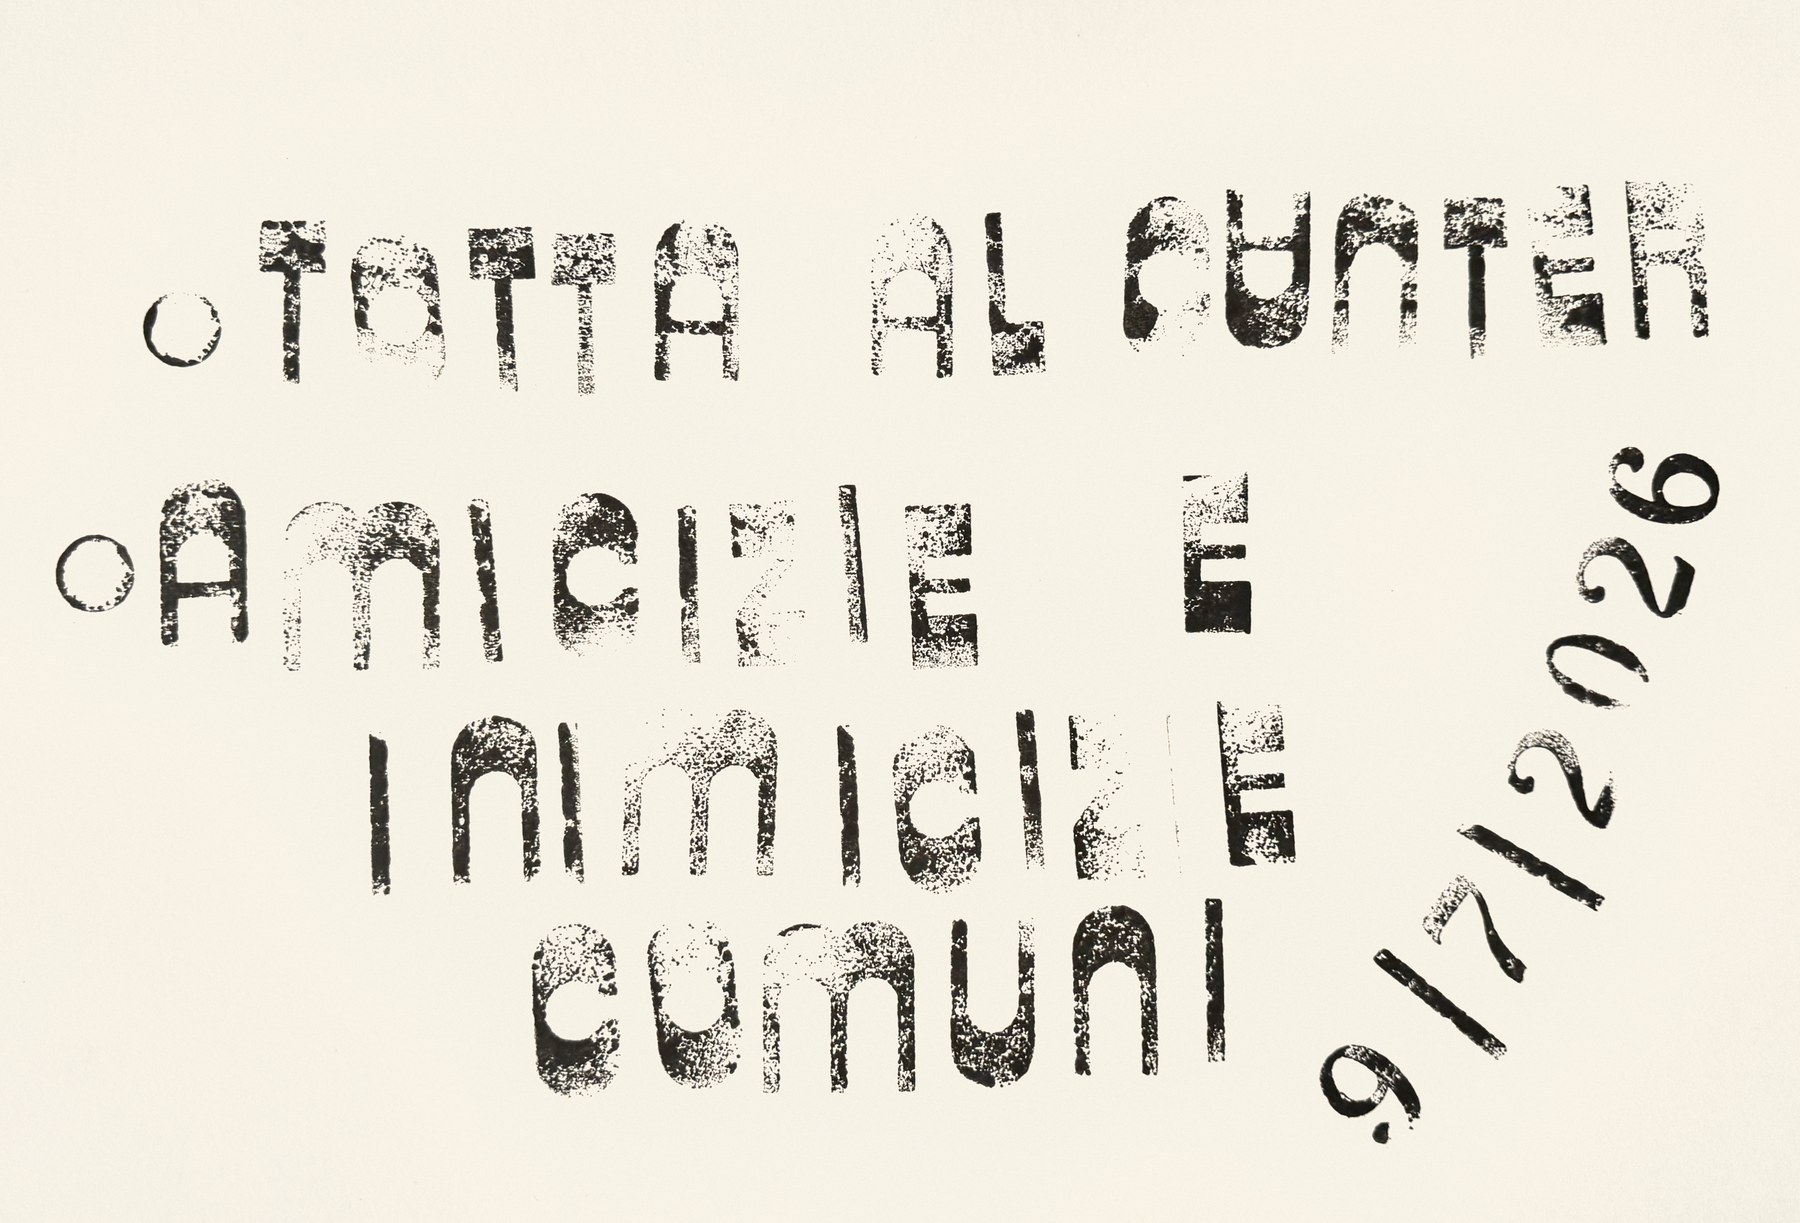 TOTTA AL CANTER
AMICIZIE E
INIMICIZIE
COMUNI
9/7/2026